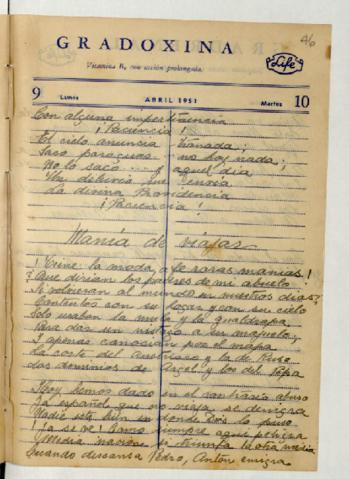 46
GRADOXINA
Vitamina B, con acción prolongada
Life
9 Lunes ABRIL 1951 Martes 10
Con alguna impertinencia
¡Paciencia!
El cielo anuncia tronada;
Saco paraguas... no hay nada;
No lo saco... y aquel dia
Un diluvio que envia
La divina Providencia
¡Paciencia!
Mania de viajar
la moda, a fe raras manias!
¿Que dirian los padres de mi abuelo
Si volvieran al mundo en nuestros dias?
Contentos con su hogar y con su cielo
Solo usaban la mula y la gualdrapa
Para dar un a un majuelo,
Y apenas conocian por el mapa
La corte del y la de Ruse
dos dominios de Argel y los del Papa
Hoy hemos dado en el contrario abuso
Ya español que no viaja se denigra
Nadie esta bien en donde Dios lo puso
¡Ya se ve! Como siempre aqui peligra
Media nacion si triunfa la otra media
Cuando descansa Pedro, Anton emigra